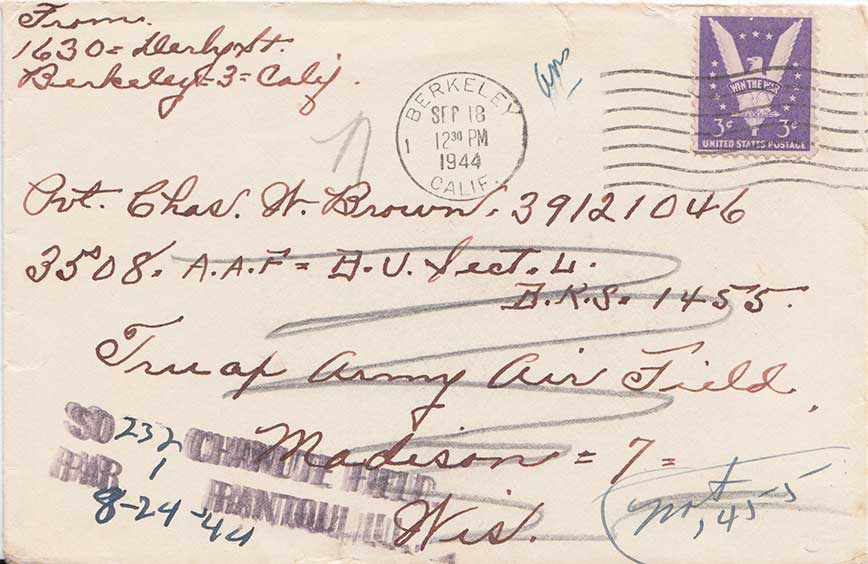 From.
1630 = Derby St.
Berkeley - 3 = Calif.
BERKELEY
SEP 18
12 30 PM
1944
CALIF.
1
WIN THE WAR
3¢ 3¢
UNITED STATES POSTAGE
Pvt. Chas. W. Brown. 39121046
3508. A.A.F = B.U. Sect. L.
B.K.S. 1455.
Truap Army Air Field.
Madison = 7 =
Wis.
SO 232 CHANUTE FIELD
PAR 1 RANTOUL ILL.
8-24-44
not
1455